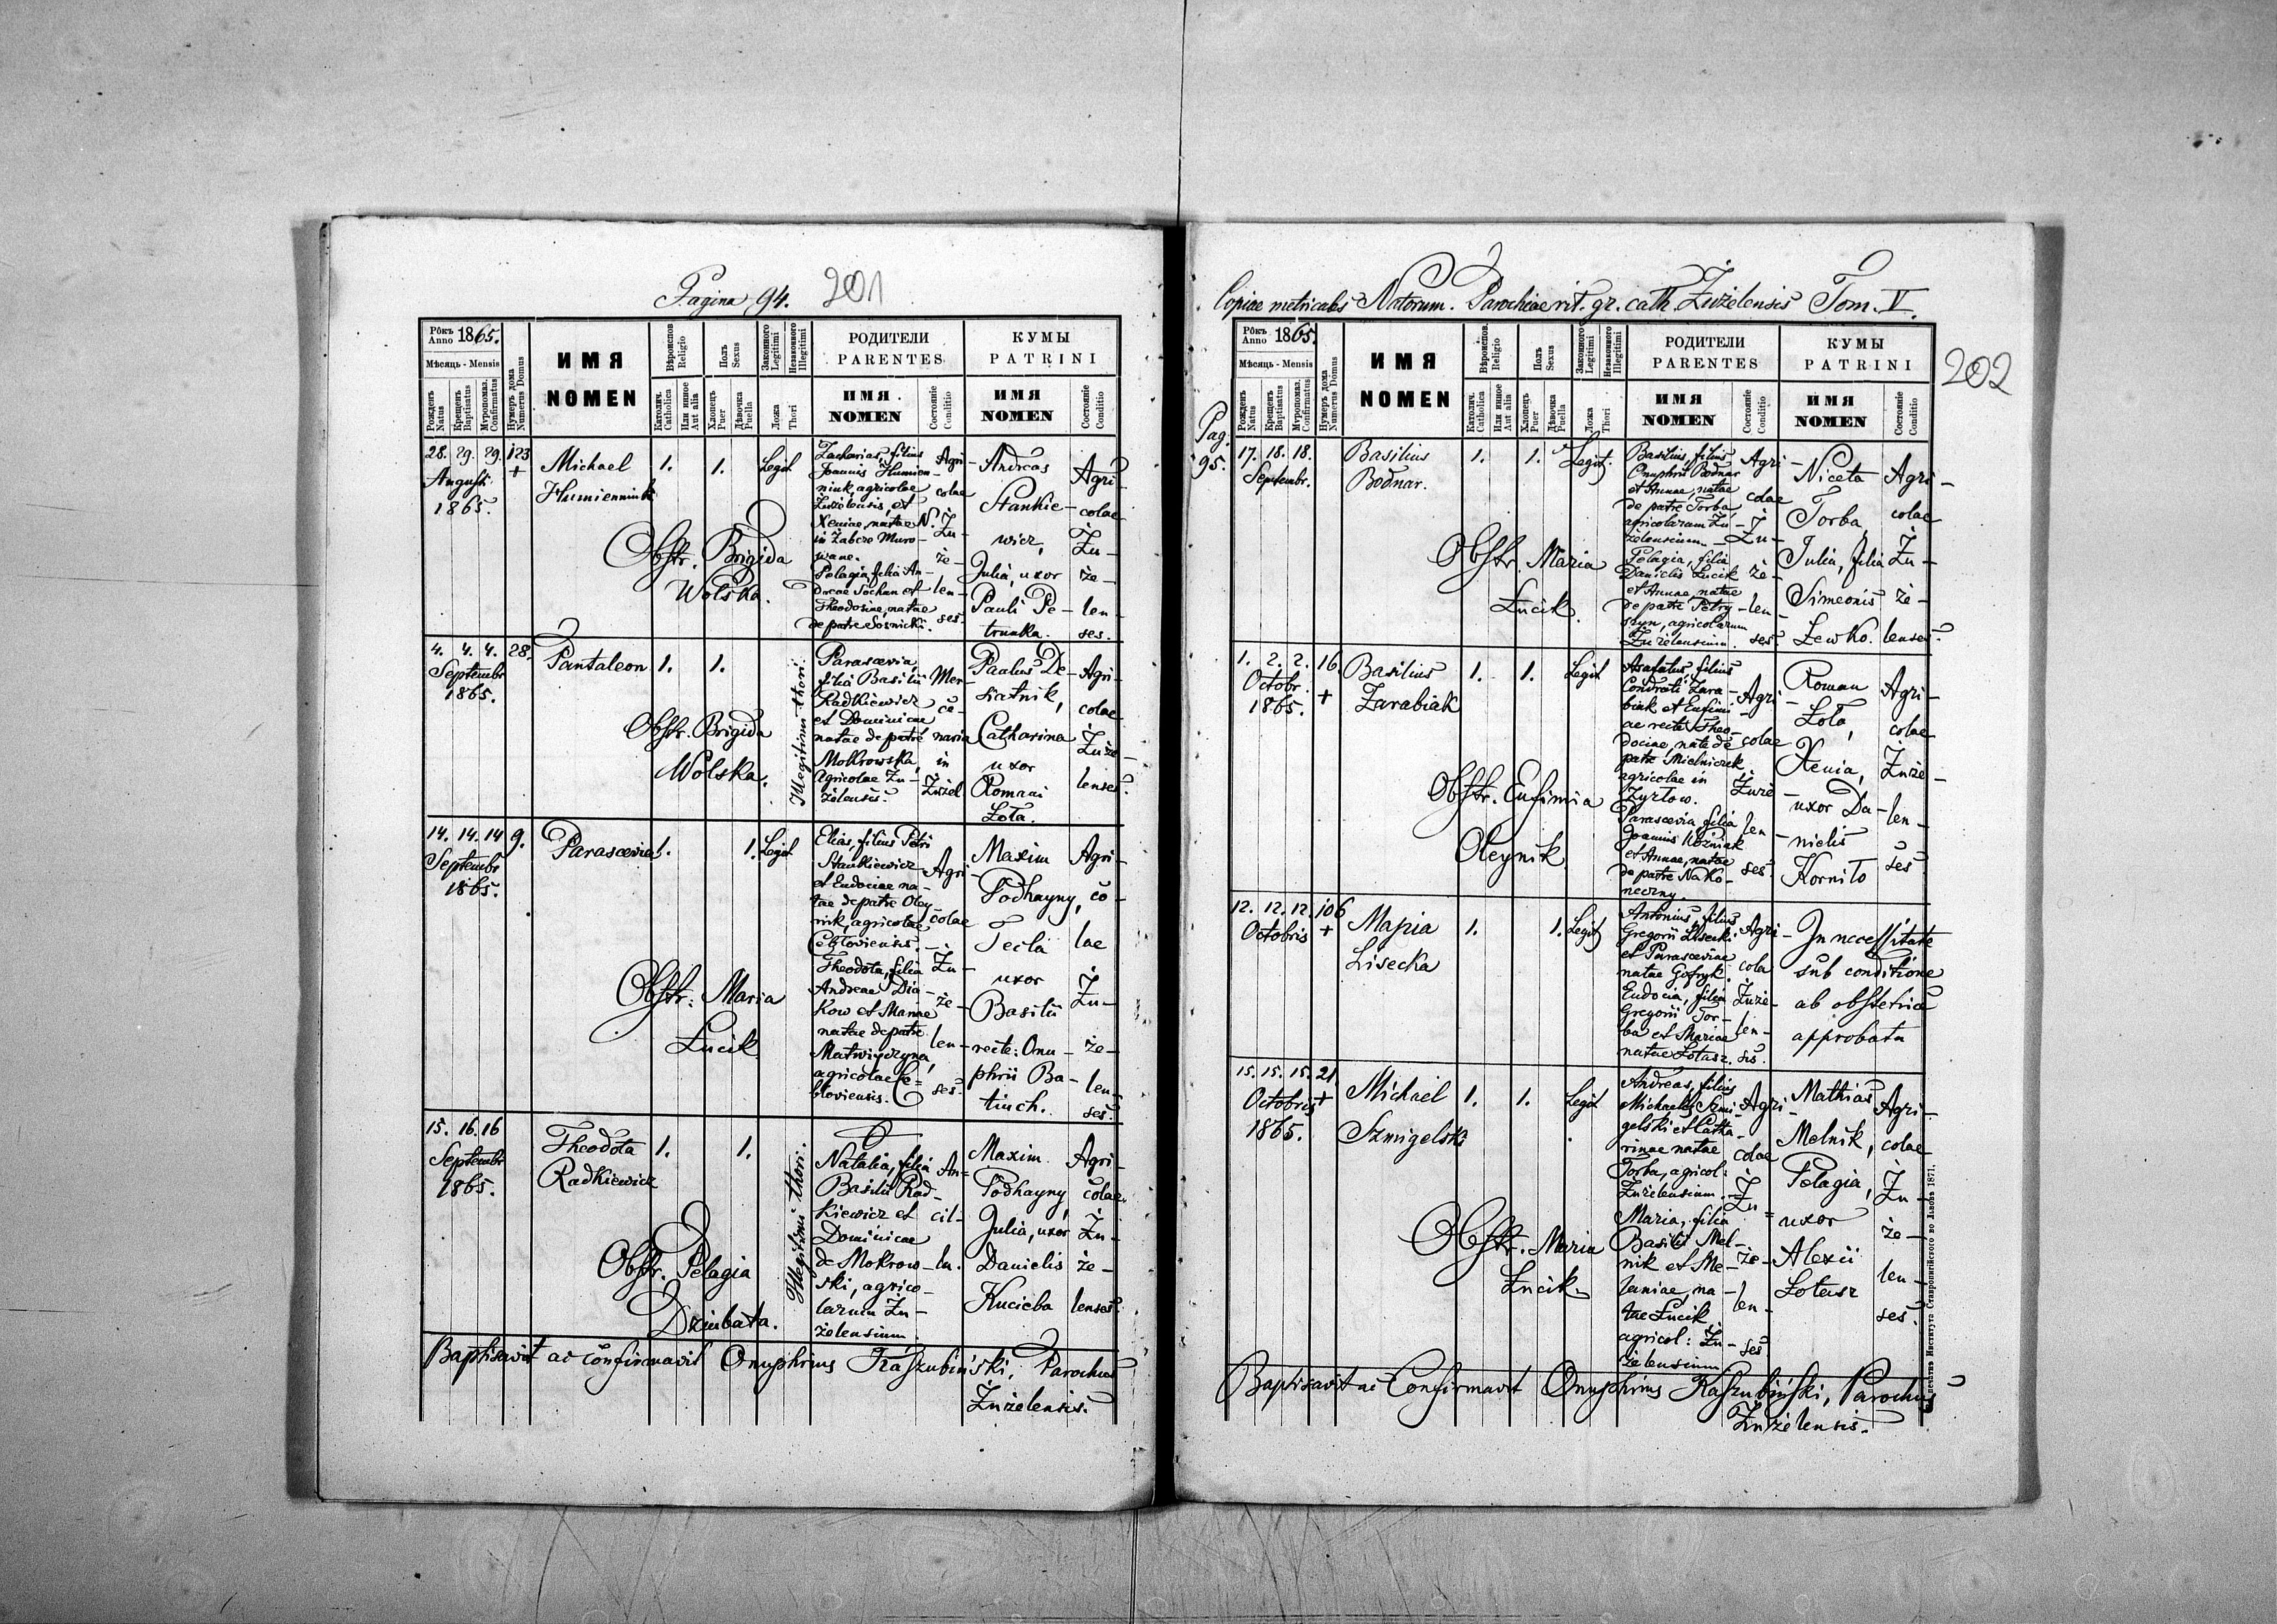 Pagina 94. 201
Рôкъ Anno 1865.
Мѣсяць - Mensis
Рожденъ Natus
Крещенъ Baptisatus
Муропомаз. Confirmatus
Нумеръ дома Numerus Domus
ИМЯ
NOMEN
Вѣроисповѣд. Religio
Католич. Catholica
Или инное Aut alia
Полъ Sexus
Хлопець Puer
Дѣвочка Puella
Законного Legitimi
Незаконного Illegitimi
Ложа Thori
РОДИТЕЛИ
PARENTES
ИМЯ
NOMEN
Состояніе Conditio
КУМЫ
PATRINI
ИМЯ
NOMEN
Состояніе Conditio
28. 29. 29. 123
+
Augusti
1865.
Michael
Humienniuk
1. 1. Legit
Obstr. Brigida
Wolska.
Zacharias, filius
Joannis Humien-
niuk, agricolae
Zużelensis, et
Xeniae, natae N.
in Żabcze Muro-
wane.
Pelagia, filia An-
dreae Sochan et
Theodosiae, natae
de patre Sosnicki.
Agri-
colae
Żu-
że-
len-
ses.
Andreas
Stankie-
wicz,
Julia, uxor
Pauli Pe-
trunka.
Agri-
colae
Żu-
że-
len-
ses.
4. 4. 4. 28.
Septembr
1865.
Pantaleon 1. 1.
Obstr. Brigida
Wolska.
Illegitimi thori.
Parascevia,
filia Basilii
Radkiewicz
et Dominicae
natae de patre
Mokrowska,
agricolae Zu-
żelensis.
Mer-
ce-
naria
in
Żużel
Paulus De-
siatnik,
Catharina
uxor
Romani
Łota.
Agri-
colae
Żuże-
lenses.
14. 14. 14 9.
Septembr
1865.
Parascevia 1. 1. Legit
Obstr. Maria
Łucik
Elias, filius Petri
Stankiewicz
et Eudociae na-
tae de patre Oley-
nik, agricolae
Cebloviensis.
Theodota, filia
Andreae Dia-
kow et Mariae
natae de patre
Matwijczyna,
agricolae Ce-
bloviensis.
Agri-
colae
Żu-
że-
len-
ses.
Maxim
Podhayny,
Tecla
uxor
Basilii
recte: Onu-
phrii Ba-
tiuch.
Agri-
co-
lae
Żu-
że-
len-
ses.
15. 16. 16
Septembr
1865.
Theodota
Radkiewicz
1. 1.
Obstr. Pelagia
Dziubata.
Illegitimi thori.
Natalia, filia
Basilii Rad-
kiewicz et
Dominicae
de Mokrow-
ski, agrico-
larum Zu-
żelensium.
An-
cil-
la.
Maxim
Podhayny,
Julia, uxor
Danielis
Kucieba
Agri-
colae
Żu-
że-
lenses.
Baptisavit ac confirmavit Onuphrius Kaszubiński, Parochus
Żużelensis.
Copiae metricales Natorum. Parochiae rit. gr. cath. Żużelensis Tom. V.
202
Pag.
95.
Рôкъ Anno 1865.
Мѣсяць - Mensis
Рожденъ Natus
Крещенъ Baptisatus
Муропомаз. Confirmatus
Нумеръ дома Numerus Domus
ИМЯ
NOMEN
Вѣроисповѣд. Religio
Католич. Catholica
Или инное Aut alia
Полъ Sexus
Хлопець Puer
Дѣвочка Puella
Законного Legitimi
Незаконного Illegitimi
Ложа Thori
РОДИТЕЛИ
PARENTES
ИМЯ
NOMEN
Состояніе Conditio
КУМЫ
PATRINI
ИМЯ
NOMEN
Состояніе Conditio
17. 18. 18.
Septembr.
Basilius
Bodnar.
1. 1. Legit.
Obstr. Maria
Łucik.
Basilius, filius
Onuphrii Bodnar
et Annae, natae
de patre Torba,
agricolarum Zu-
żelensium.
Pelagia, filia
Danielis Łucik
et Annae, natae
de patre Petry-
szyn, agricolarum
Żużelensium.
Agri-
colae
Żu-
że-
len-
ses.
Niceta
Torba,
Julia, filia
Simeonis
Lewko.
Agri-
colae
Żu-
że-
lenses.
1. 2. 2. 16
+
Octobr.
1865.
Basilius
Zarabiak
1. 1. Legit
Obstr. Eufimia
Oleynik
Asafatus, filius
Condrati Zara-
biak et Eufimi-
ae recte Theo-
dociae, natae de
patre Mielniczek
agricolae in
Zyrtow.
Parascevia filia
Joannis Woźniak
et Annae, natae
de patre Nako-
neczny.
Agri-
colae
Żuże-
len-
ses.
Roman
Łota,
Xenia,
uxor Da-
nielis
Kornito
Agri-
colae
Żuże-
len-
ses.
12. 12. 12. 106
Octobris +
Maria
Lisecka
1. 1. Legit
Antonius, filius
Gregorii Lisecki
et Parasceviae
natae Gofryk.
Eudocia, filia
Gregorii Tor-
ba et Mariae
natae Łotasz.
Agri-
cola
Żuże-
len-
sis.
In necessitate
sub conditione
ab obstetrice
approbata
15. 15. 15. 21.
Octobris +
1865.
Michael
Szmigelski
1. 1. Legit.
Obstr. Maria
Łucik.
Andreas, filius
Michaelis Szmi-
gelski et Catha-
rinae natae
Torba, agricol:
Żużelensium.
Maria, filia
Basilii Mel-
nik et Me-
laniae, na-
tae Łucik
agricol: Żu-
żelensium
Agri-
colae
Żu-
że-
len-
ses.
Mathias
Melnik,
Pelagia,
uxor
Alexii
Łotasz
Agri-
colae
Żu-
że-
len-
ses.
Baptisavit ac Confirmavit Onuphrius Kaszubiński, Parochus
Żużelensis.
печатнѣ Института Ставропигійского во Львовѣ 1871.